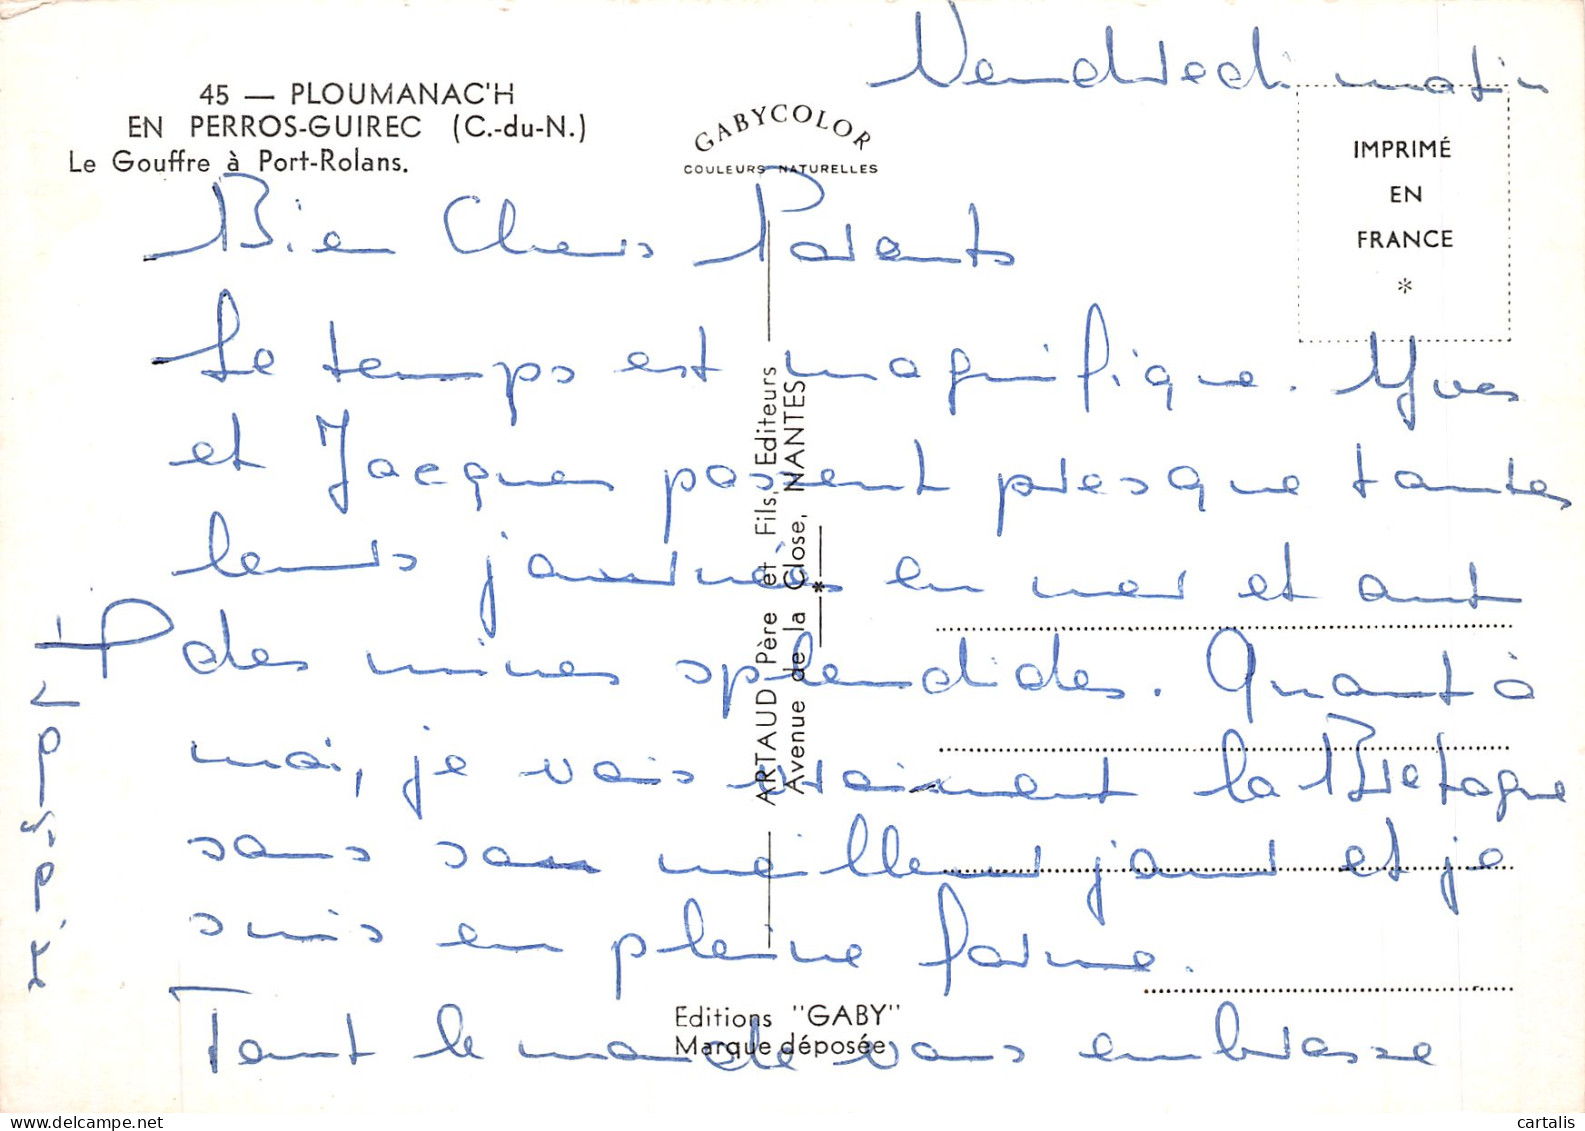 Vendredi matin
45 — PLOUMANAC'H
EN PERROS-GUIREC (C.-du-N.)
Le Gouffre à Port-Rolans.
GABYCOLOR
COULEURS NATURELLES
IMPRIMÉ
EN
FRANCE
*
Bien Chers Parents
Le temps est magnifique. Yves
et Jacques passent presque toutes
leurs journées en mer et ont
des mines splendides. Quant à
moi, je vois vraiment la Bretagne
sous son meilleur jour et je
suis en pleine forme.
Tout le monde vous embrasse
ARTAUD Père et Fils, Editeurs
Avenue de la Close, NANTES
*
Editions "GABY"
Marque déposée
cartalis